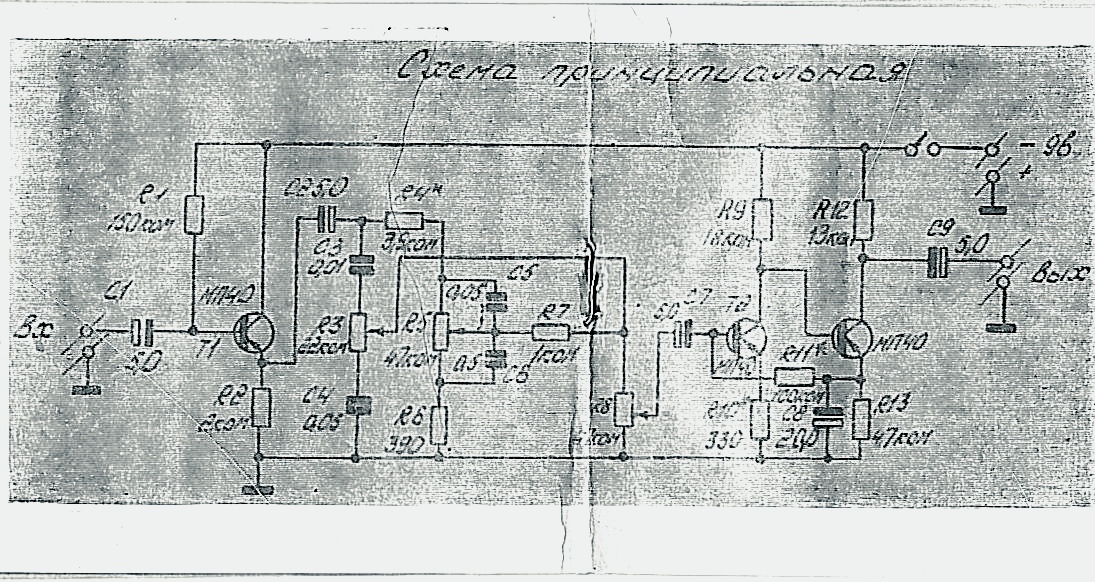 Схема принципиальная
- 9в.
+
R1
150ком
C2 5,0
R4*
3,9ком
C3
0,01
R9
18ком
R12
13ком
C9
5,0
Вых
C1
Вх
5,0
МП40
T1
R3
22ком
R5
47ком
C5
0,05
R7
1ком
0,5
C6
C7
5,0
T2
МП40
R11*
100ком
МП40
R2
2ком
C4
0,05
R6
390
R8
47ком
R10*
330
C8
20,0
R13
47ком